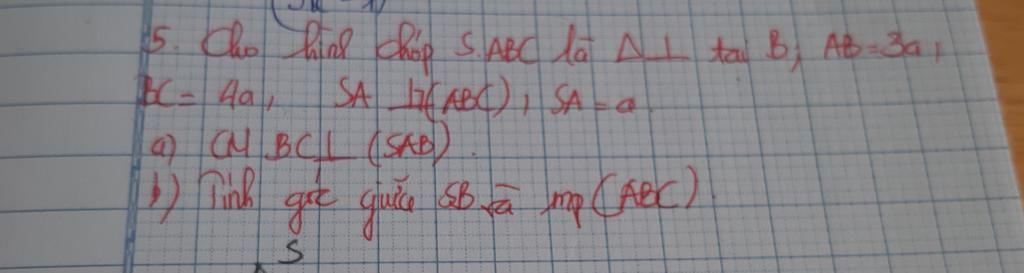 5. Cho hình chóp S.ABC là Δ⊥ tại B, AB = 3a,
BC = 4a, SA ⊥ (ABC), SA = a
a) CM BC⊥ (SAB).
b) Tính góc giữa SB và mp (ABC).
S